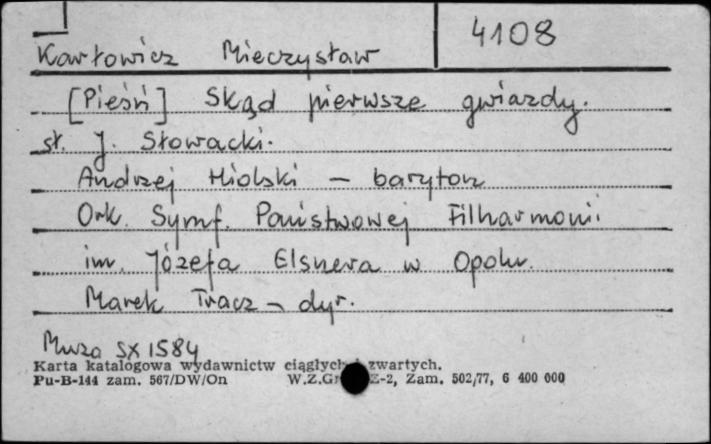 4108
Karłowicz Mieczysław
[Pieśń] Skąd pierwsze gwiazdy.
sł. J. Słowacki.
Andrzej Hiolski – baryton
Ork. Symf. Państwowej Filharmonii
im. Józefa Elsnera w Opolu.
Marek Tracz – dyr.
Muza SX 1584
Karta katalogowa wydawnictw ciągłych i zwartych.
Pu-B-144 zam. 567/DW/On W.Z.Gr Z-2, Zam. 502/77, 6 400 000